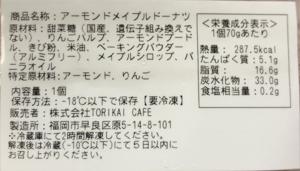 商品名：アーモンドメイプルドーナツ
原材料：甜菜糖（国産、遺伝子組み換えでな
い）、りんごパルプ、アーモンドプードル
、きび粉、米油、ベーキングパウダー
（アルミフリー）、メイプルシロップ、バ
ニラオイル
特定原材料：アーモンド、りんご
内容量：1個
保存方法：-18℃以下で保存【要冷凍】
販売者：株式会社TORIKAI CAFE
製造所：福岡市早良区原5-14-8-101
※冷蔵庫にて2時間解凍してください。
解凍後は冷蔵(-10℃以下)にて5日以内に
お召し上がりください。
＜栄養成分表示＞
1個70gあたり
熱量：287.5kcal
たんぱく質：5.1g
脂質：16.6g
炭水化物：33.0g
食塩相当量：0.2g